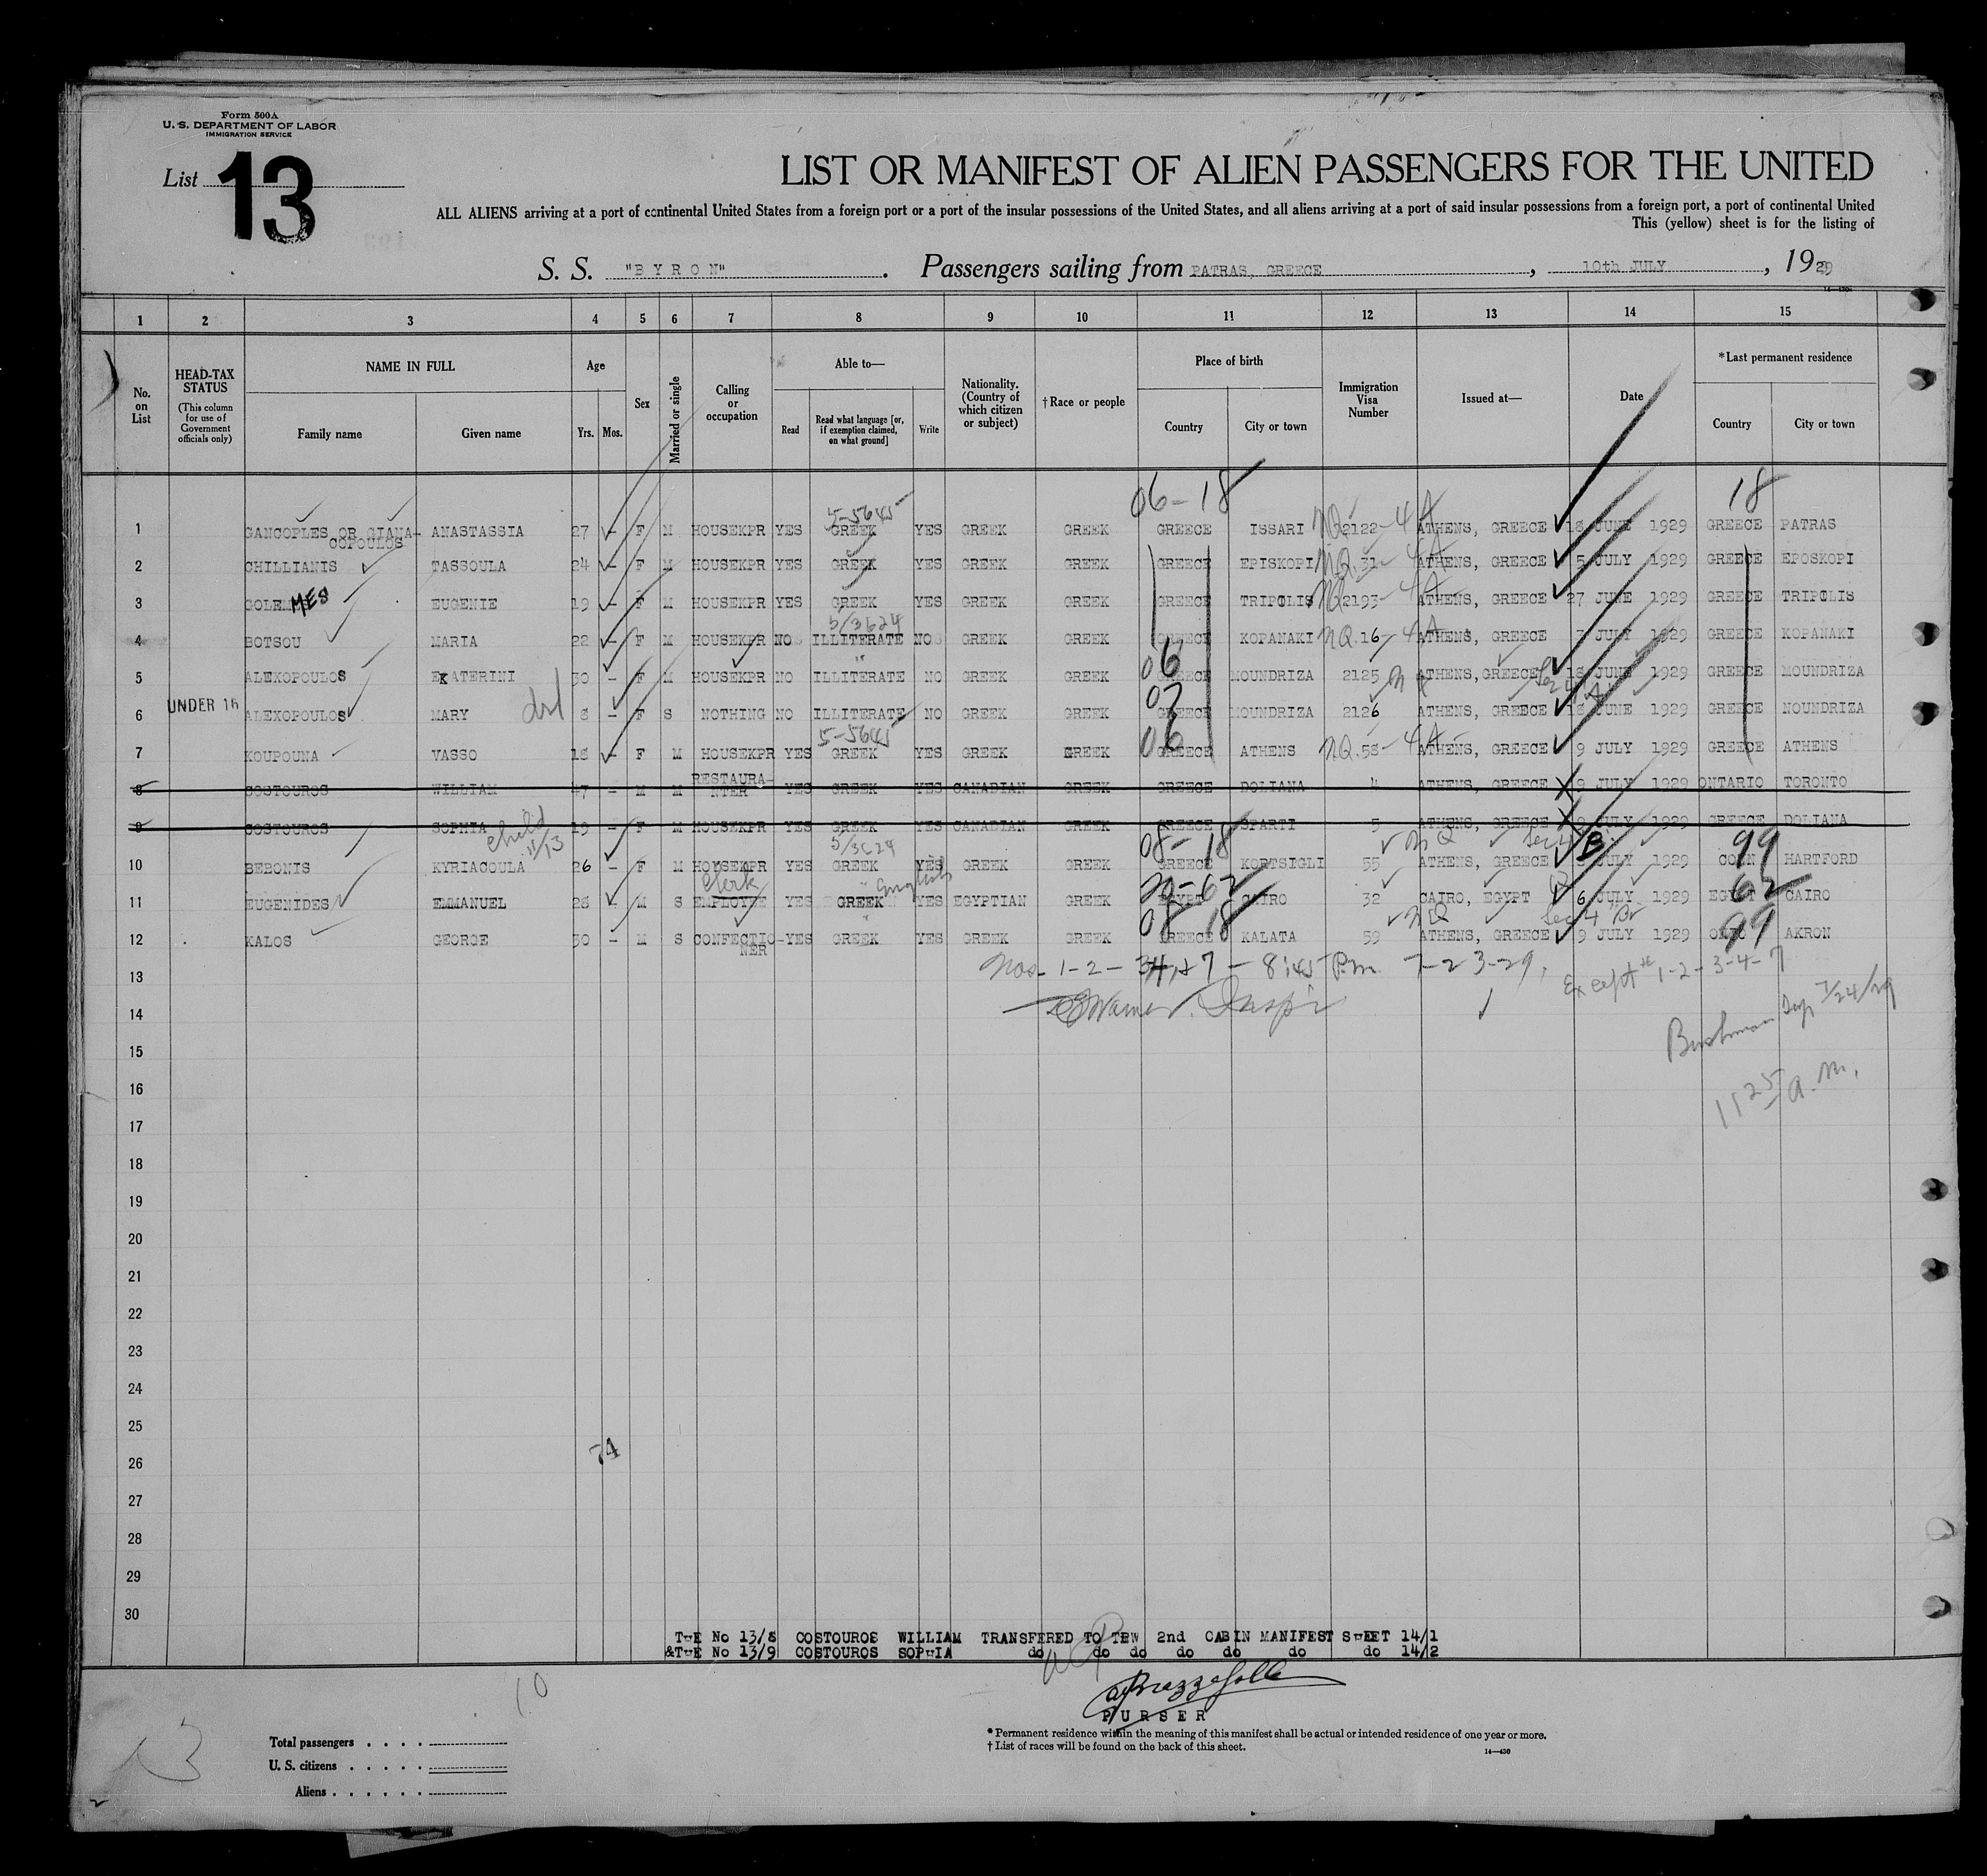 Form 500A
U. S. DEPARTMENT OF LABOR
IMMIGRATION SERVICE
List 13
LIST OR MANIFEST OF ALIEN PASSENGERS FOR THE UNITED
ALL ALIENS arriving at a port of continental United States from a foreign port or a port of the insular possessions of the United States, and all aliens arriving at a port of said insular possessions from a foreign port, a port of continental United
This (yellow) sheet is for the listing of
S. S. "BYRON". Passengers sailing from PATRAS, GREECE, 10th JULY, 1929
1 2 3 4 5 6 7 8 9 10 11 12 13 14 15
No. on List
HEAD-TAX STATUS (This column for use of Government officials only)
NAME IN FULL
Family name Given name
Age
Yrs. Mos.
Sex
Married or single
Calling or occupation
Able to—
Read Read what language [or, if exemption claimed, on what ground] Write
Nationality. (Country of which citizen or subject)
†Race or people
Place of birth
Country City or town
Immigration Visa Number
Issued at—
Date
*Last permanent residence
Country City or town
06-18 18
5-5645
1 GANCOPLES OR GIANA-COPOULOS ANASTASSIA 27 - F M HOUSEKPR YES GREEK YES GREEK GREEK GREECE ISSARI NQ 2122-4A ATHENS, GREECE 18 JUNE 1929 GREECE PATRAS
2 CHILLIANIS TASSOULA 24 - F M HOUSEKPR YES GREEK YES GREEK GREEK GREECE EPISKOPI NQ.31-4A ATHENS, GREECE 5 JULY 1929 GREECE EPOSKOPI
3 GOLEMES EUGENIE 19 - F M HOUSEKPR YES GREEK YES GREEK GREEK GREECE TRIPOLIS NQ 2193-4A ATHENS, GREECE 27 JUNE 1929 GREECE TRIPOLIS
5/3624
4 BOTSOU MARIA 22 - F M HOUSEKPR NO ILLITERATE NO GREEK GREEK GREECE KOPANAKI NQ.16-4A ATHENS, GREECE JULY 1929 GREECE KOPANAKI
06
5 ALEXOPOULOS EKATERINI 30 - F M HOUSEKPR NO ILLITERATE NO GREEK GREEK GREECE MOUNDRIZA 2125 NQ ATHENS, GREECE 18 JUNE 1929 GREECE MOUNDRIZA
07
UNDER 16
6 ALEXOPOULOS MARY 8 - F S NOTHING NO ILLITERATE NO GREEK GREEK GREECE MOUNDRIZA 2126 ATHENS, GREECE 18 JUNE 1929 GREECE NOUNDRIZA
5-5645 06
7 KOUPOUNA VASSO 18 - F M HOUSEKPR YES GREEK YES GREEK GREEK GREECE ATHENS NQ.58-4A ATHENS, GREECE 9 JULY 1929 GREECE ATHENS
8 COSTOUROS WILLIAM 47 - M M RESTAURA-NTER YES GREEK YES CANADIAN GREEK GREECE DOLIANA 4 ATHENS, GREECE 9 JULY 1929 ONTARIO TORONTO
9 COSTOUROS SOPHIA 19 - F M HOUSEKPR YES GREEK YES CANADIAN GREEK GREECE SPARTI 5 ATHENS, GREECE 9 JULY 1929 GREECE DOLIANA
child 11/13 5/3624 08-18 NQ Sec 4 B 99
10 BEBONIS KYRIACOULA 26 - F M HOUSEKPR YES GREEK YES GREEK GREEK GREECE KORTSIGLI 55 ATHENS, GREECE JULY 1929 CONN HARTFORD
Clerk " English 20-62 62
11 EUGENIDES EMMANUEL 28 - M S EMPLOYEE YES GREEK YES EGYPTIAN GREEK EGYPT CAIRO 32 CAIRO, EGYPT 6 JULY 1929 EGYPT CAIRO
08 18 NQ Sec 4 Br 99
12 KALOS GEORGE 30 - M S CONFECTIO-NER YES GREEK YES GREEK GREEK GREECE KALATA 59 ATHENS, GREECE 9 JULY 1929 OHIO AKRON
13 Nos. 1-2-34, & 7 - 8:45 P.m. 7-23-29,
Except # 1-2-3-4-7
14 Warner. Inspr
Bushman Insp 7/24/29
15
16
11 25 a.m.
17
18
19
20
21
22
23
24
25
74
26
27
28
29
30
THE No 13/8 COSTOUROS WILLIAM TRANSFERED TO THW 2nd CABIN MANIFEST SHEET 14/1
&THE No 13/9 COSTOUROS SOPHIA do do do do do do do 14/2
10
PURSER
13
Total passengers
U. S. citizens
Aliens
* Permanent residence within the meaning of this manifest shall be actual or intended residence of one year or more.
† List of races will be found on the back of this sheet.
14—430
2